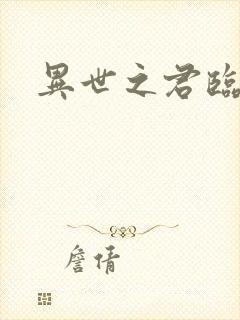 異世之君臨
詹倩